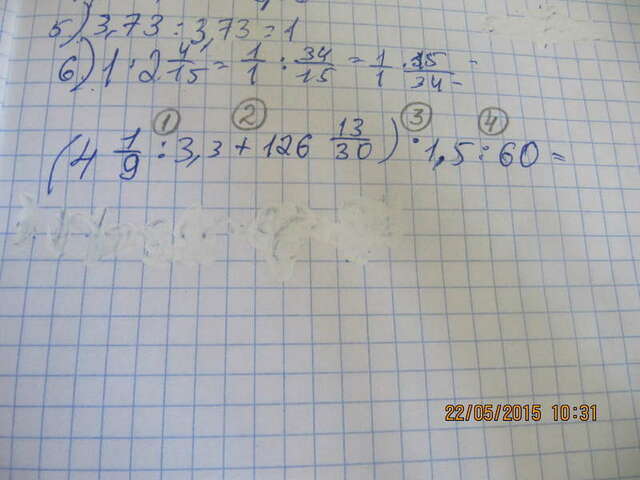 5) 3,73 : 3,73 = 1
6) 1 : 2 4/15 = 1/1 : 34/15 = 1/1 · 15/34 =
① ② ③ ④
(4 1/9 : 3,3 + 126 13/30) · 1,5 : 60 =
22/05/2015 10:31